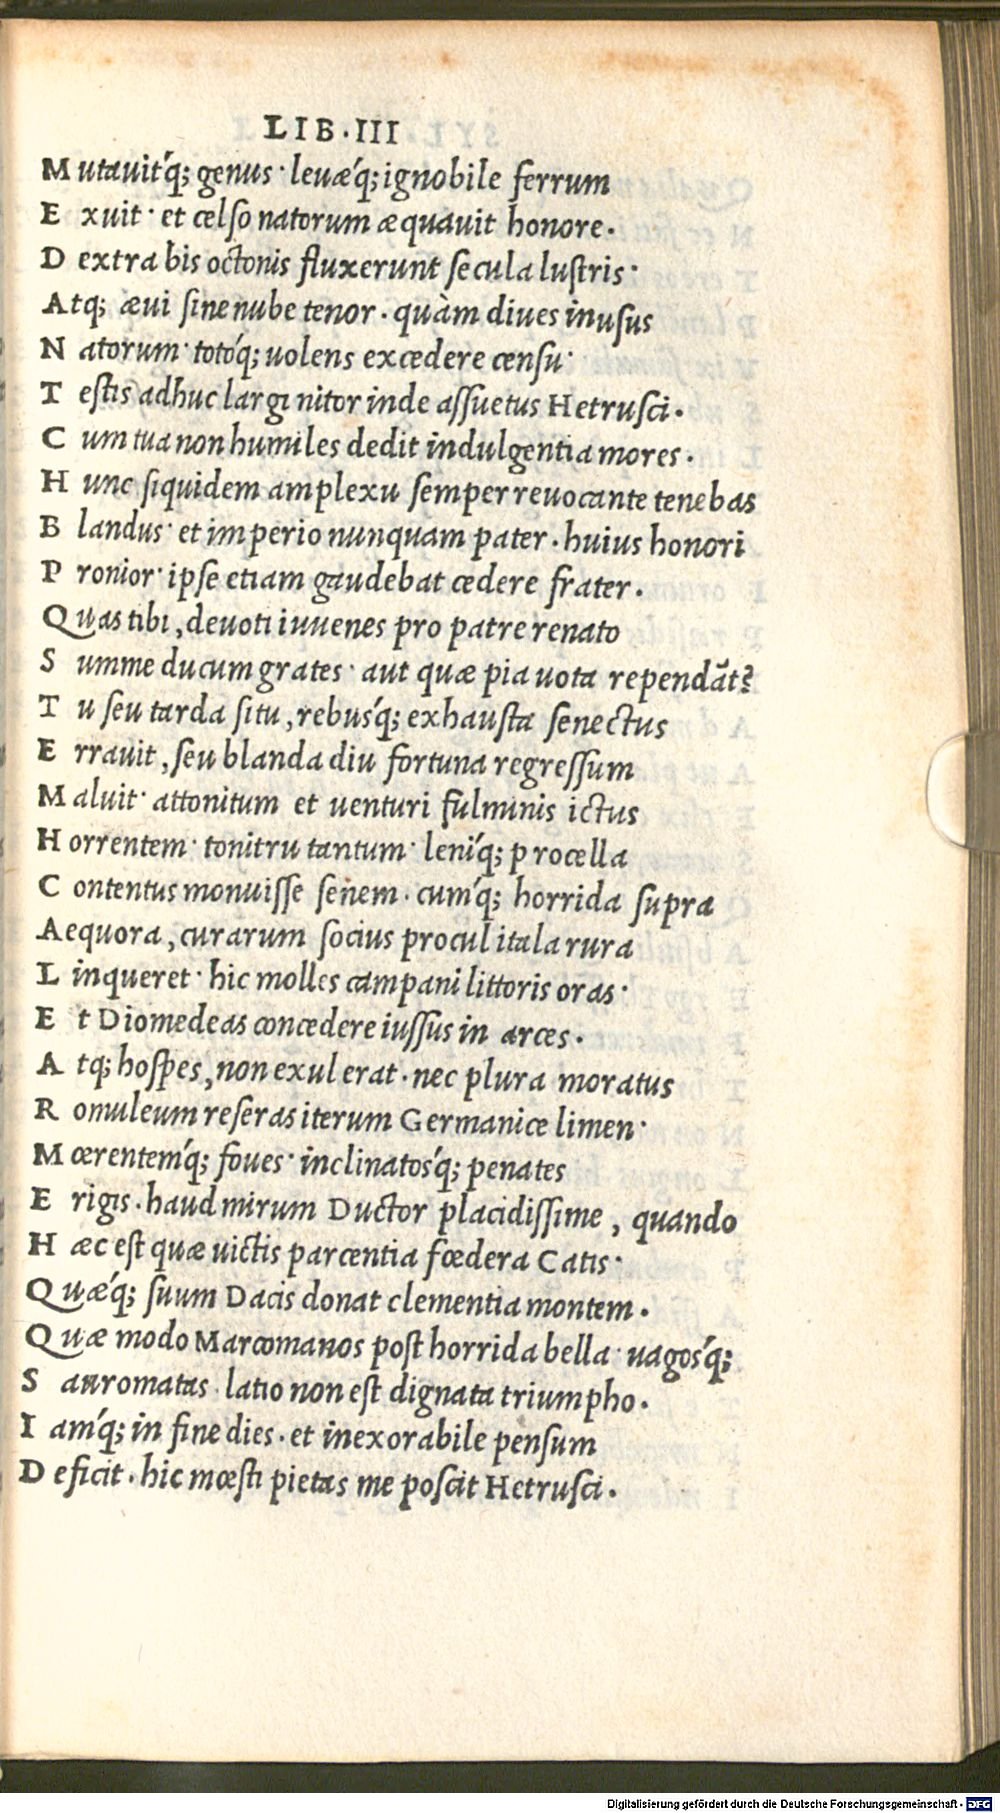 LIB.III
Mutauit'q; genus· leuæ'q; ignobile ferrum
Exuit· et celso natorum æquauit honore.
Dextra bis octonis fluxerunt secula lustris·
Atq; æui sine nube tenor. quàm diues in usus
Natorum· toto'q; uolens excedere censu·
Testis adhuc largi nitor inde assuetus Hetrusci.
Cum tua non humiles dedit indulgentia mores.
Hunc siquidem amplexu semper reuocante tenebas
Blandus· et imperio nunquam pater. huius honori
Pronior· ipse etiam gaudebat cedere frater.
Quas tibi, deuoti iuuenes pro patre renato
Summe ducum grates· aut quæ pia uota rependãt?
Tu seu tarda situ, rebus'q; exhausta senectus
Errauit, seu blanda diu fortuna regressum
Maluit· attonitum et uenturi fulminis ictus
Horrentem· tonitru tantum· leni'q; procella
Contentus monuisse senem. cum'q; horrida supra
Aequora, curarum socius procul itala rura
Linqueret· hic molles campani littoris oras·
Et Diomedeas concedere iussus in arces.
Atq; hospes, non exul erat. nec plura moratus
Romuleum reseras iterum Germanice limen·
Mœrentem'q; foues· inclinatos'q; penates
Erigis. haud mirum Ductor placidissime, quando
Hæc est quæ uictis parcentia fœdera Catis·
Quæ'q; suum Dacis donat clementia montem.
Quæ modo Marcomanos post horrida bella· uagos'q;
Sauromatas· latio non est dignata triumpho.
Iam'q; in fine dies. et inexorabile pensum
Deficit. hic mœsti pietas me poscit Hetrusci.
Digitalisierung gefördert durch die Deutsche Forschungsgemeinschaft - DFG